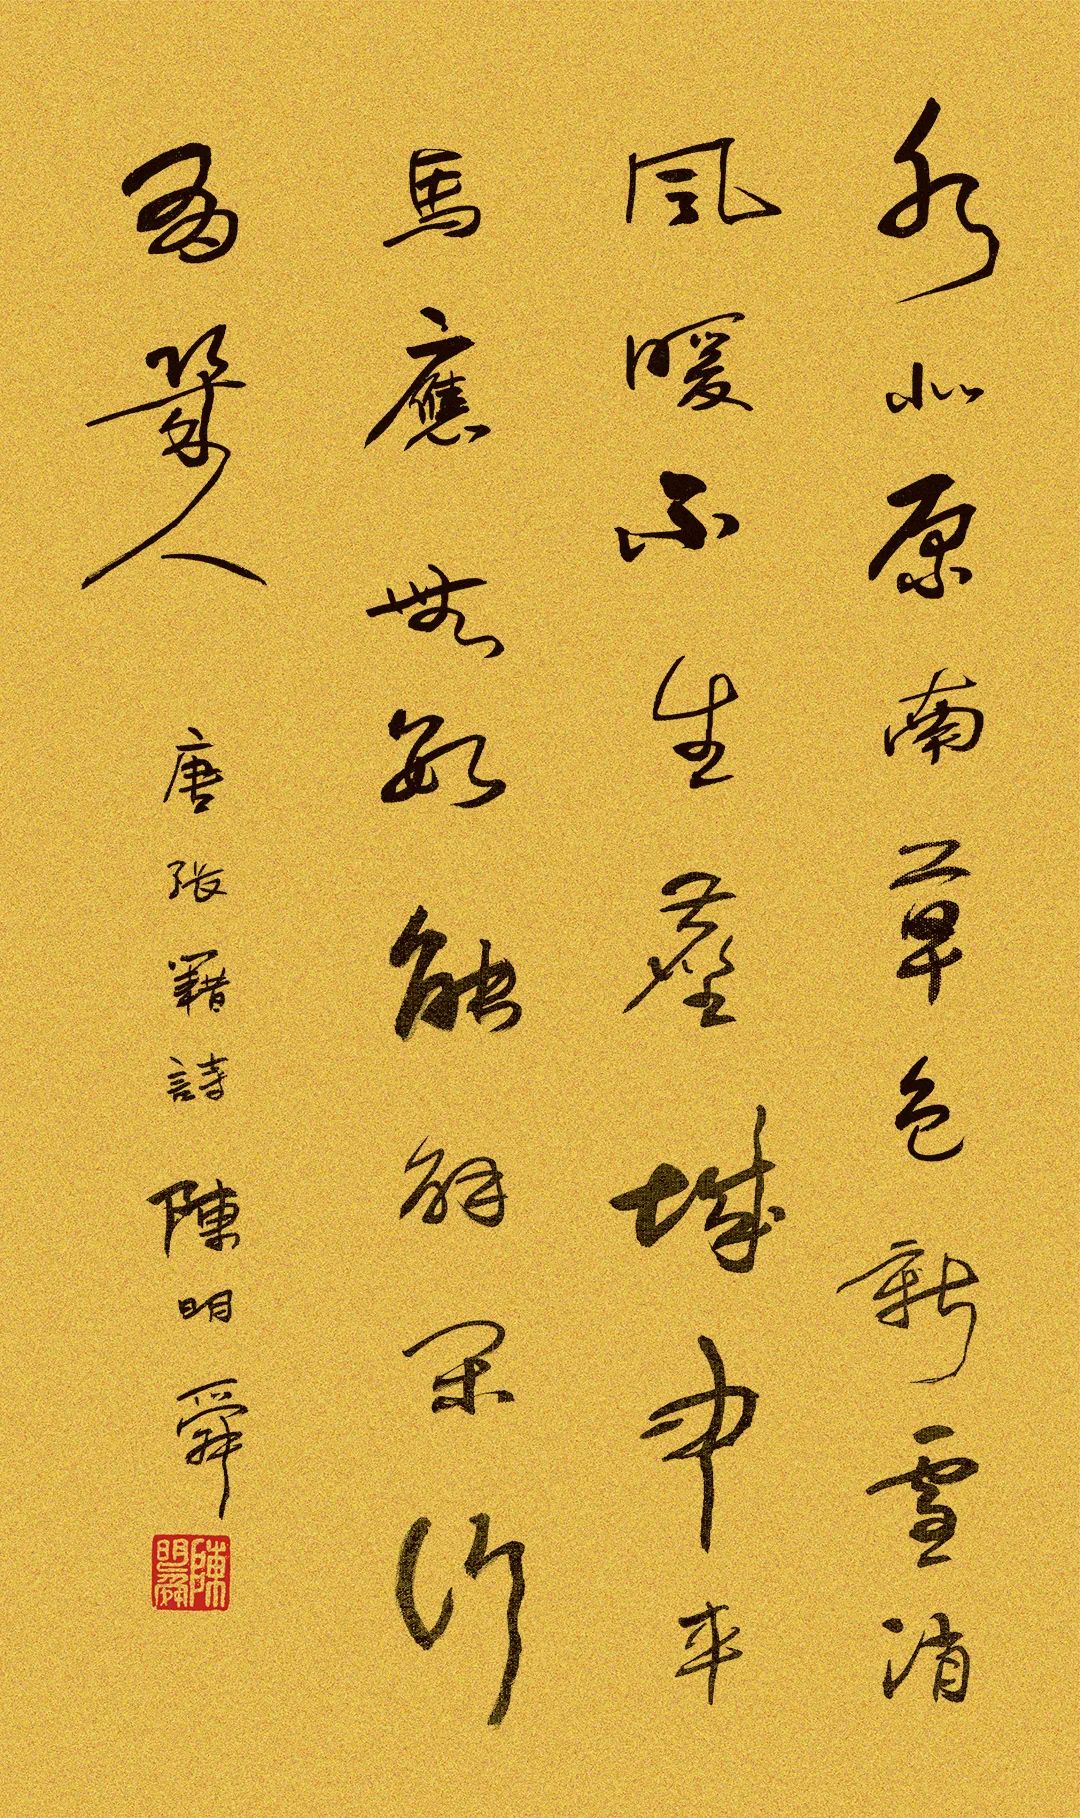 水北原南草色新雪消
風暖不生塵城中車
馬應無數能解閑行
有幾人 唐張籍詩 陳明舜
陳明舜